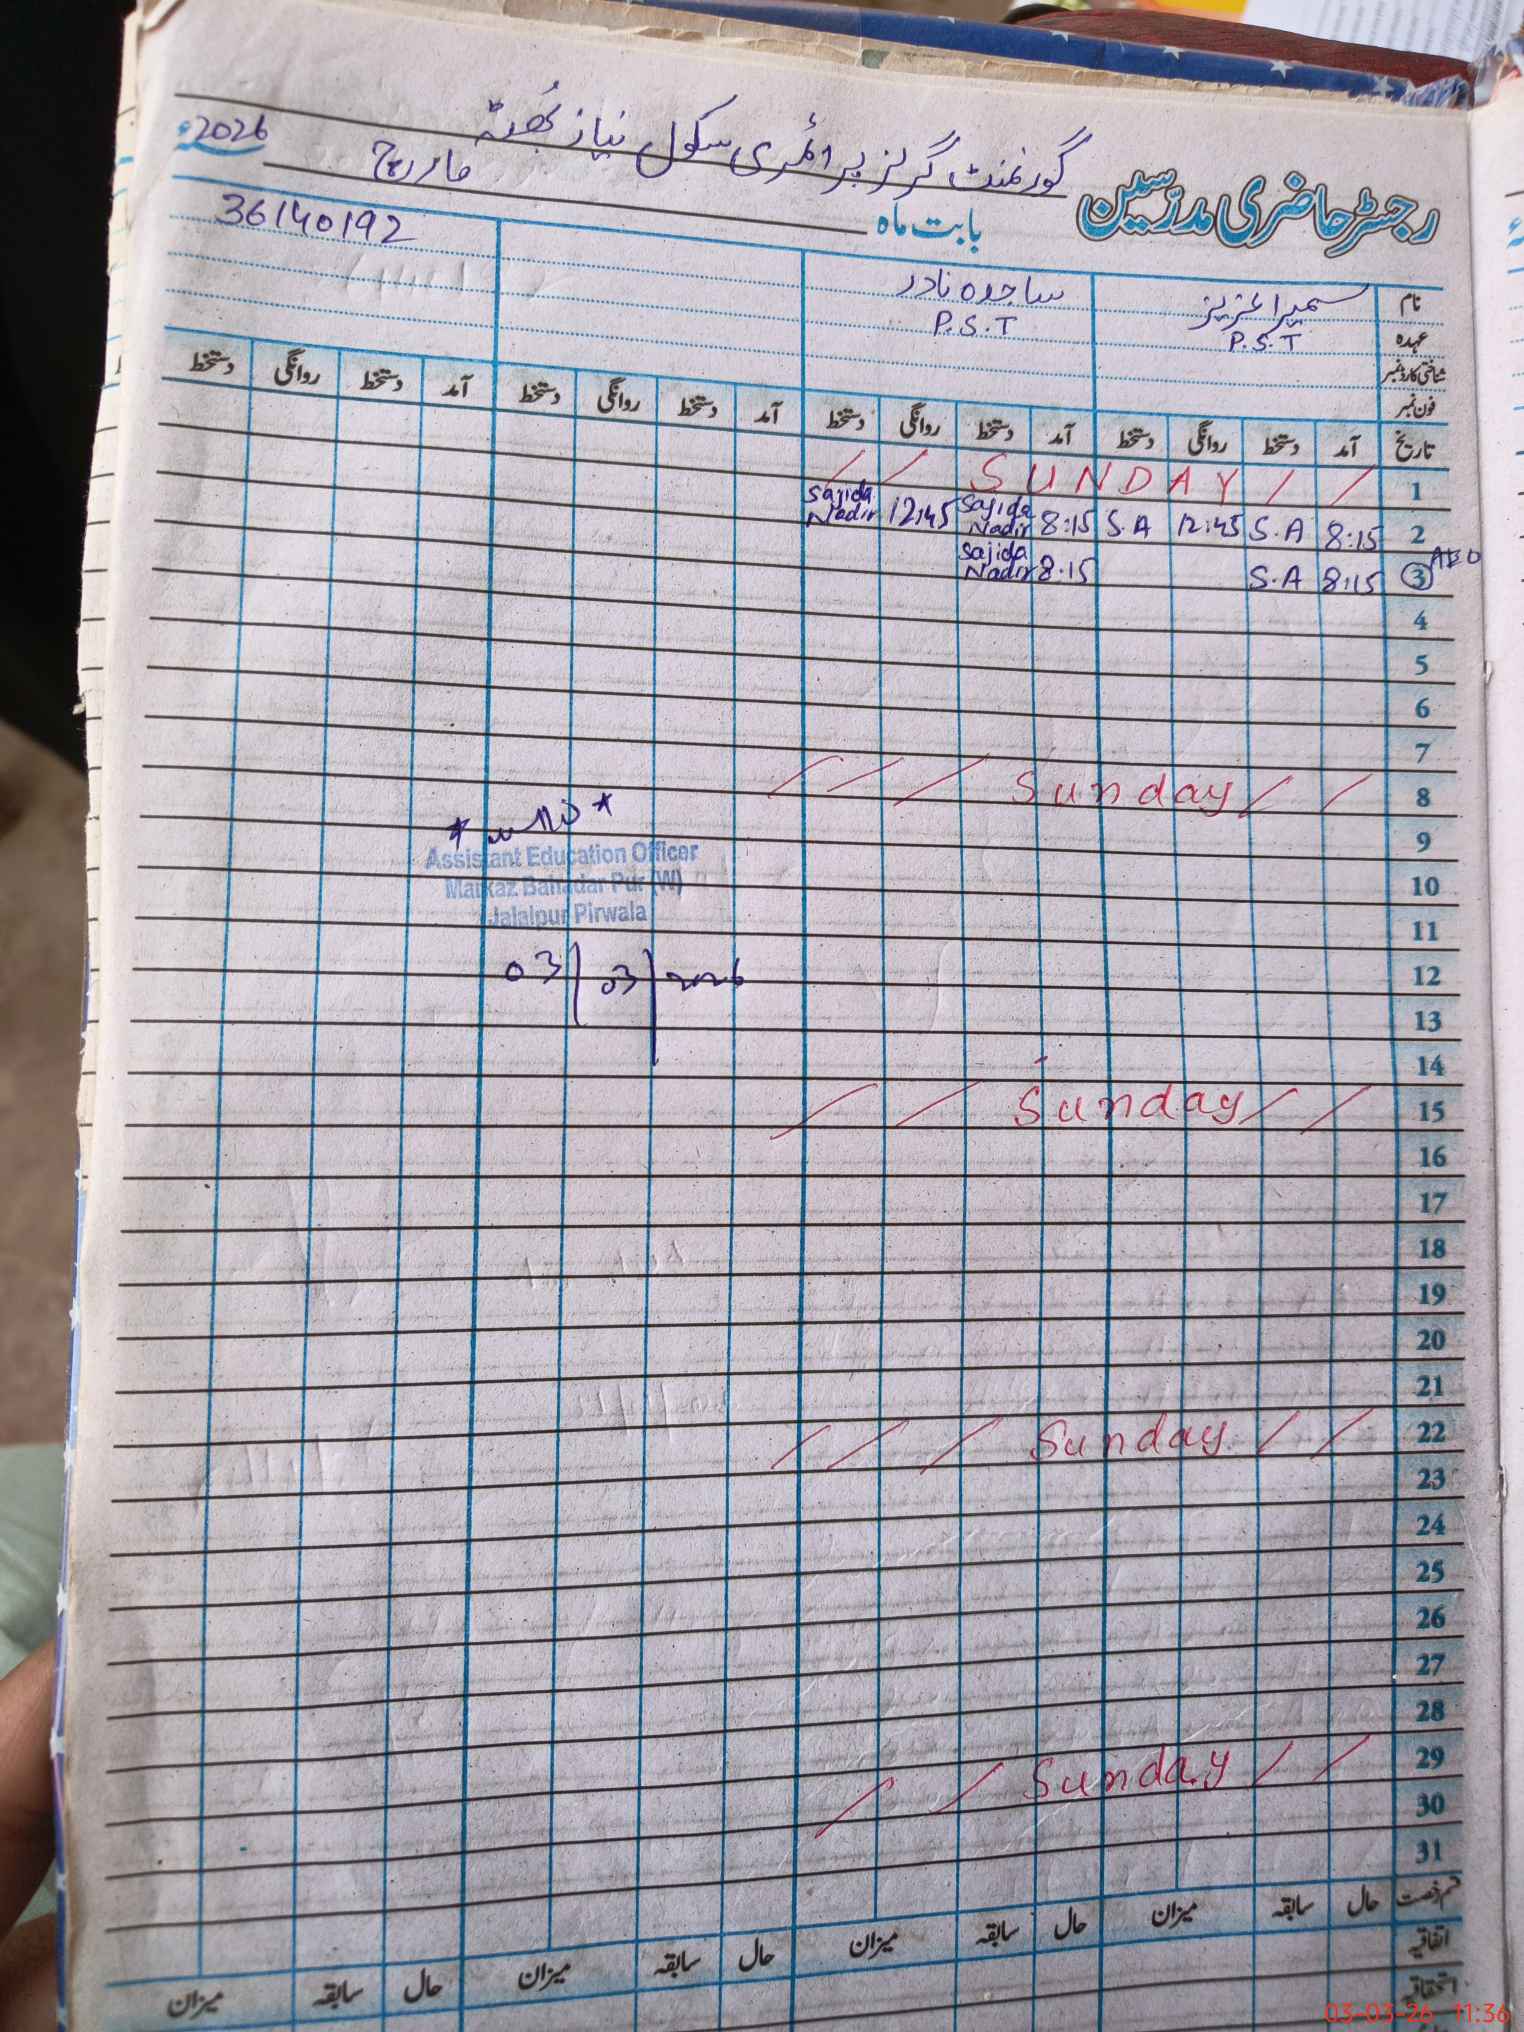 گورنمنٹ گرلز پرائمری سکول نیاز بھٹہ
رجسٹر حاضری مدرسین
بابت ماہ مارچ 2026ء
36140192
نام سمیرا عزیز ساجدہ نادر
عہدہ P.S.T P.S.T
شناختی کارڈ نمبر
فون نمبر
تاریخ آمد دستخط روانگی دستخط آمد دستخط روانگی دستخط آمد دستخط روانگی دستخط آمد دستخط روانگی دستخط
1 / / SUNDAY / /
2 8:15 S.A 12:45 S.A 8:15 Sajida Nadir 12:45 Sajida Nadir
3 AEO 8:15 S.A 8.15 Sajida Nadir
4
5
6
7
8 / / / Sunday / /
9
10
11
12
13
14
15 / / Sunday / /
16
17
18
19
20
21
22 / / / Sunday / /
23
24
25
26
27
28
29 / / Sunday / /
30
31
Assistant Education Officer
Markaz Bahadar Pur (W)
Jalalpur Pirwala
03/03/2026
قسم رخصت حال سابقہ میزان حال سابقہ میزان حال سابقہ میزان حال سابقہ میزان
اتفاقیہ
استحقاقیہ
03-03-26 11:36